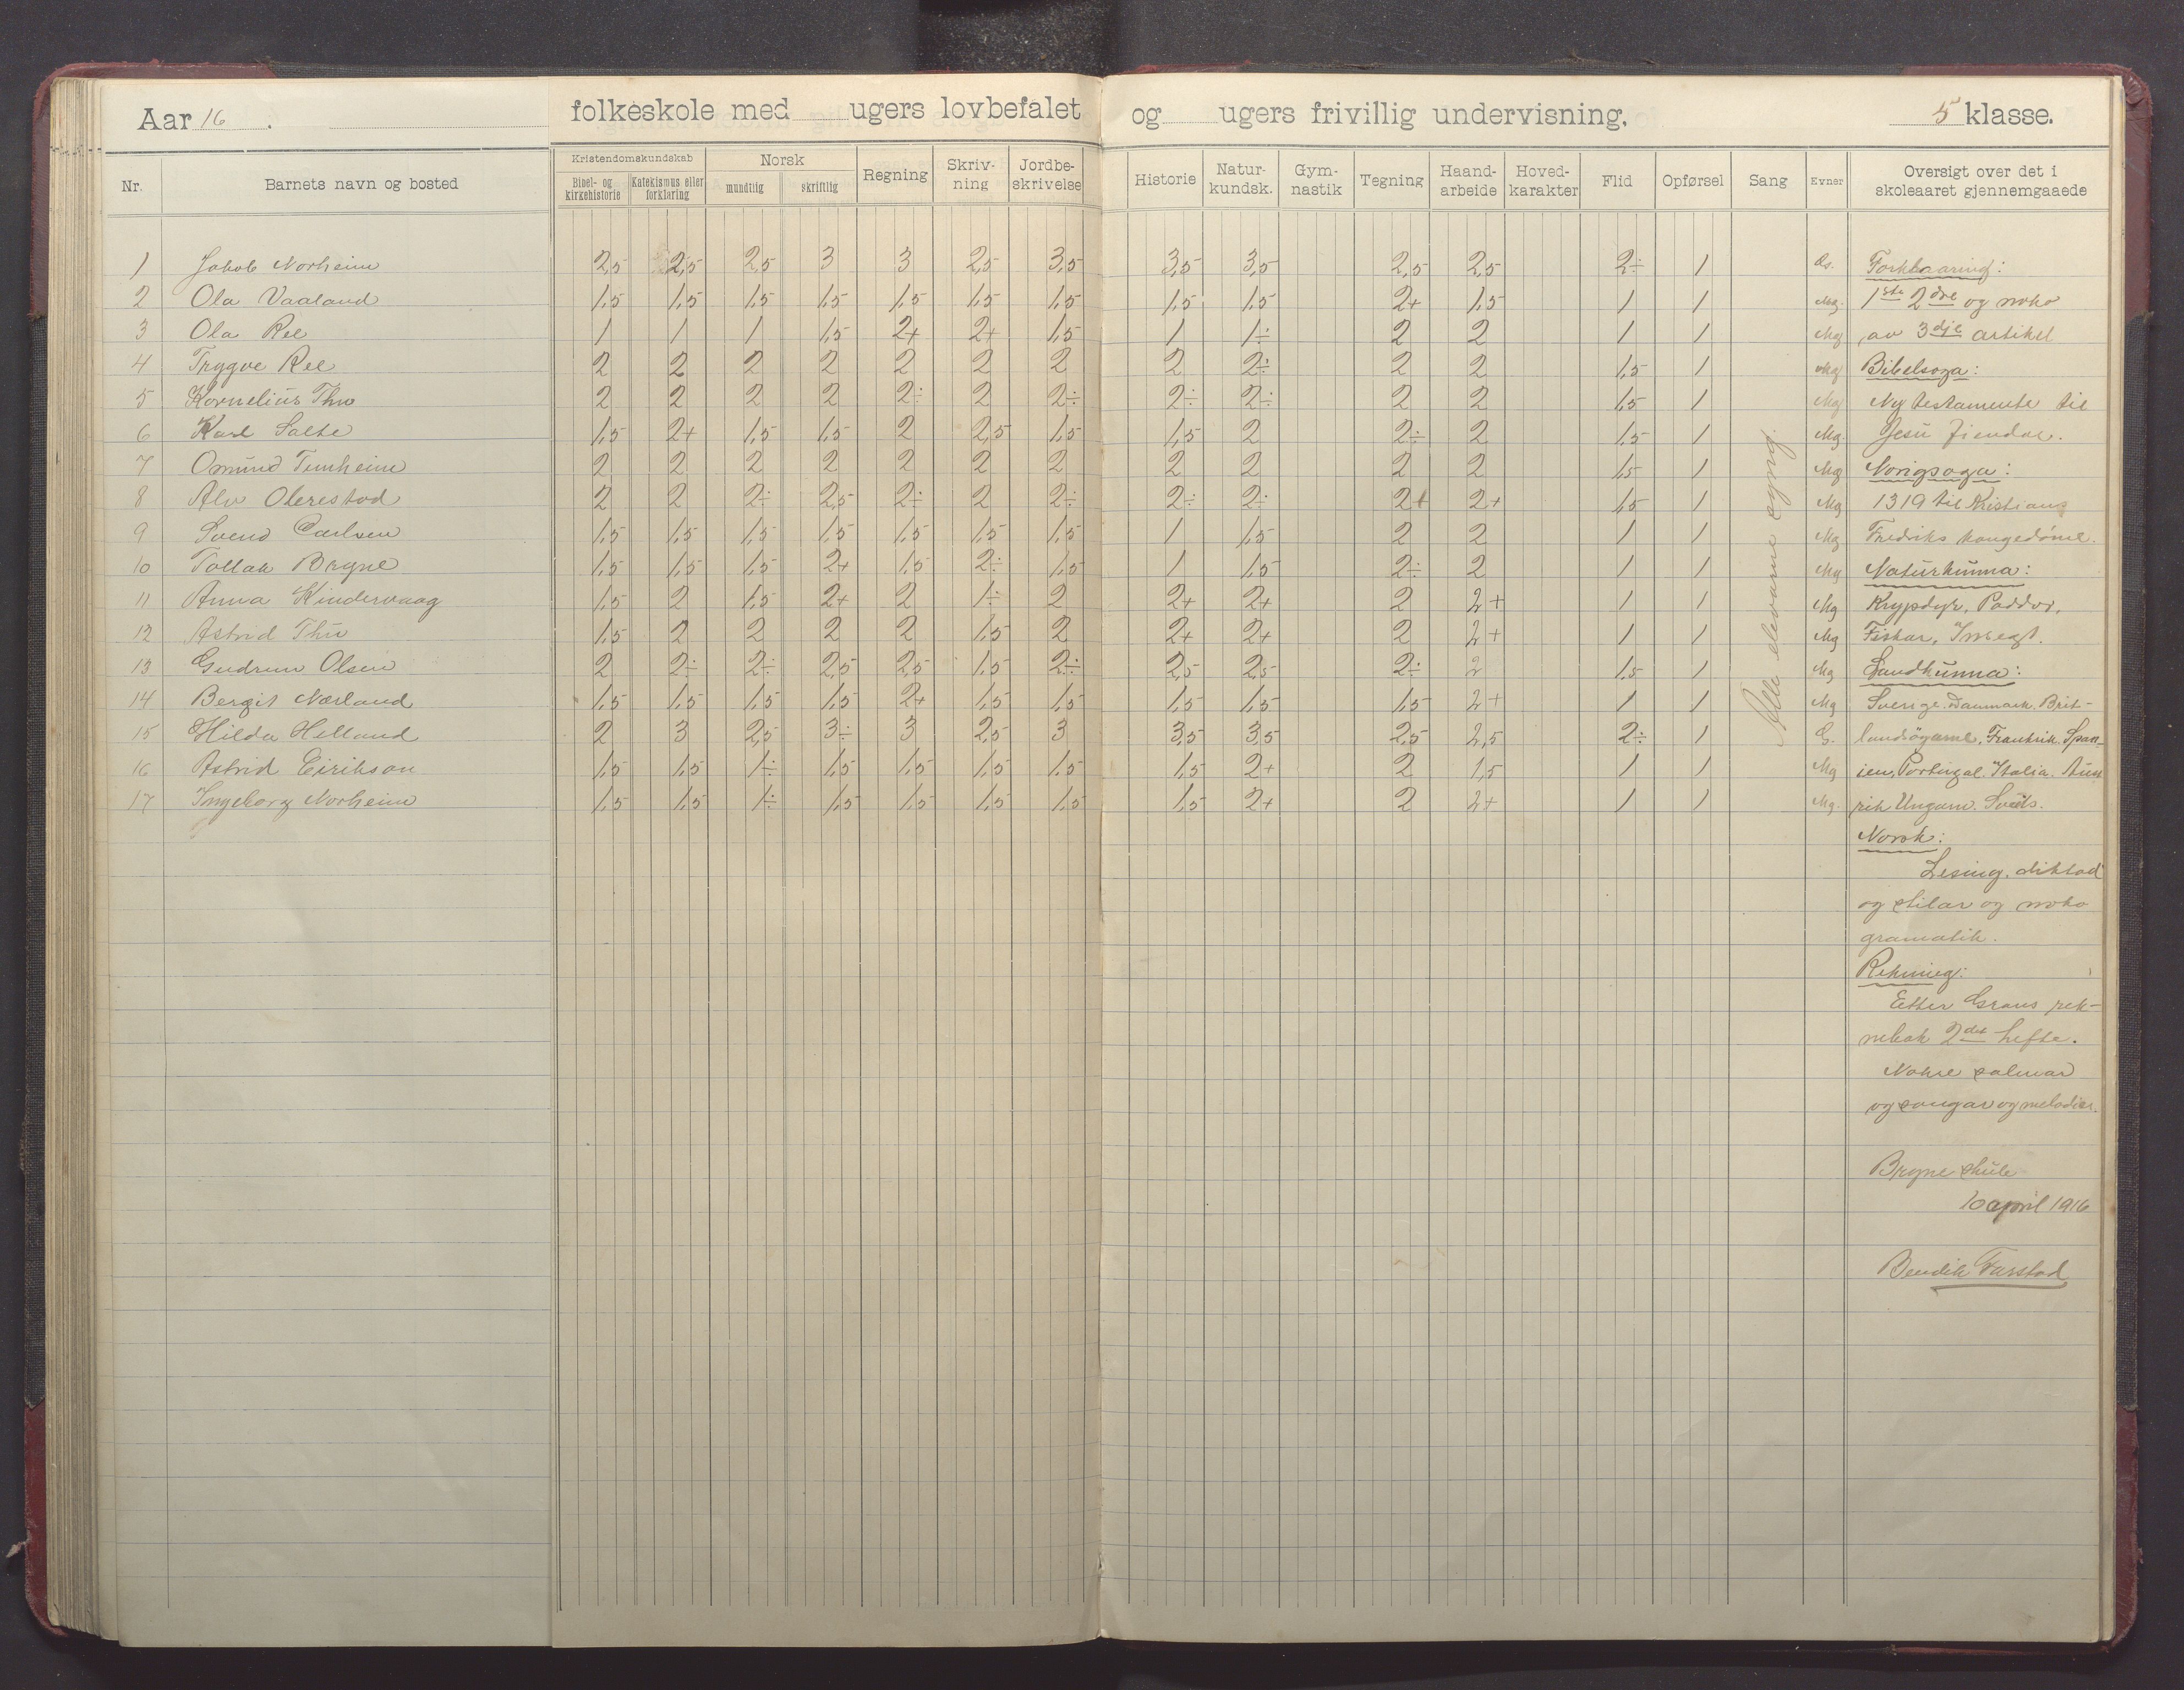 Aar 16. folkeskole med ugers lovbefalet og ugers frivillig undervisning. 5 klasse.
Nr. Barnets navn og bosted Kristendomskundskab Bibel- og kirkehistorie Katekismus eller forklaring Norsk mundtlig skriftlig Regning Skrivning Jordbeskrivelse Historie Natur-kundsk. Gymnastik Tegning Haandarbeide Hovedkarakter Flid Opførsel Sang Evner Oversigt over det i skoleaaret gjennemgaaede
1 Jakob Norheim 2,5 2,5 2,5 3 3 2,5 3,5 3,5 3,5 2,5 2,5 2÷ 1 Forklaaring:
2 Ola Vaaland 1,5 1,5 1,5 1,5 1,5 1,5 1,5 1,5 1,5 2+ 1,5 1 1 Mg. 1ste 2dre og noko
3 Ola Ree 1 1 1 1,5 2+ 2+ 1,5 1 1÷ 2 2 1 1 Mg av 3dje artikel
4 Trygve Ree 2 2 2 2 2 2 2 2 2÷ 2 2 1,5 1 Mg Bibelsoga:
5 Kornelius Thu 2 2 2 2 2÷ 2 2÷ 2÷ 2÷ 2 2 1,5 1 Mg Ny testamente til
6 Karl Salte 1,5 2+ 1,5 1,5 2 2,5 1,5 1,5 2 2÷ 2 1,5 1 Mg. Jesu fiendar.
7 Omund Tunheim 2 2 2 2 2 2 2 2 2 2 2 1,5 1 Mg Norigsoga:
8 Alv Oterestad 2 2 2÷ 2,5 2÷ 2 2÷ 2÷ 2÷ 2+ 2+ 1,5 1 Mg 1319 til Kristian
9 Svend Carlsen 1,5 1,5 1,5 1,5 1,5 1,5 1,5 1 1,5 2 2 1 1 Mg Fredriks kongedöme.
10 Tollak Bryne 1,5 1,5 1,5 2+ 1,5 2÷ 1,5 1 1,5 2÷ 2 1 1 Mg Naturkunna:
11 Anna Kindervaag 1,5 2 1,5 2+ 2 1÷ 2 2+ 2+ 2 2+ 1 1 Mg Krypdyr, Paddor,
12 Astrid Thu 1,5 2 2 2 2 1,5 2 2+ 2+ 2 2+ 1 1 Mg Fiskar, Insegt.
13 Gudrun Olsen 2 2÷ 2÷ 2,5 2,5 1,5 2÷ 2,5 2,5 2÷ 2 1,5 1 Mg Landkunna:
14 Bergit Nærland 1,5 1,5 1,5 1,5 2+ 1,5 1,5 1,5 1,5 1,5 2+ 1 1 Mg Sverige. Danmark. Brit-
15 Hilda Helland 2 3 2,5 3÷ 3 2,5 3 3,5 3,5 2,5 2,5 2÷ 1 G. landsöyarne, Frankrik. Span-
16 Astrid Eirikson 1,5 1,5 1÷ 1,5 1,5 1,5 1,5 1,5 2+ 2 1,5 1 1 Mg ien, Portugal. Italia. Aust
17 Ingeborg Norheim 1,5 1,5 1÷ 1,5 1,5 1,5 1,5 1,5 2+ 2 2+ 1 1 Mg. rik Ungarn. Sveits.
Alle elevarne syng.
Norsk:
Lesing, diktad
og stilar og noko
gramatik.
Rekning:
Etter Grans rek-
nebok 2det hefte.
Nokre salmar
og songar og melodiar.
Bryne skule
10 april 1916
Bendik Farstad